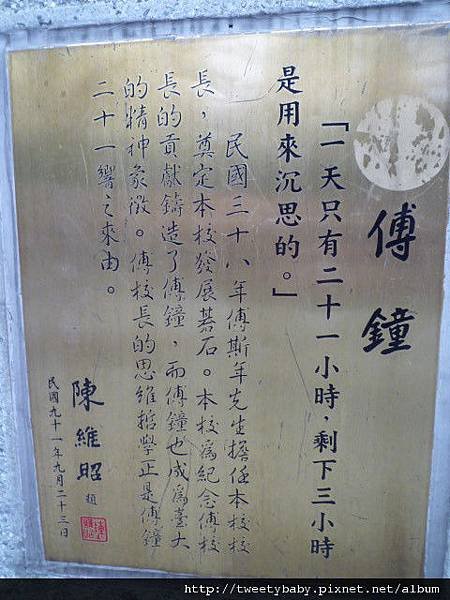 傅鐘
「一天只有二十一小時,剩下三小時
是用來沉思的。」
民國三十八年傅斯年先生擔任本校校
長,奠定本校發展碁石。本校爲紀念傅校
長的貢獻鑄造了傅鐘,而傅鐘也成爲臺大
的精神象徵。傅校長的思維哲學正是傅鐘
二十一響之來由。
陳維昭 題
民國九十一年九月二十三日
http://tweetybaby.pixnet.net/album